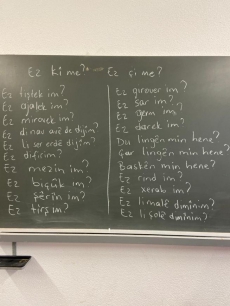 Ez kî me? Ez çi me?
Ez tiştek im?
Ez ajalek im?
Ez mirovek im?
Di nav avê de dijîm?
Li ser erdê dijîm?
Ez difirim?
Ez mezin im?
Ez biçûk im?
Ez şêrîn im?
Ez tirş im?
Ez girover im?
Ez sar im?
Ez germ im?
Ez darek im?
Du lingên min hene?
Çar lingên min hene?
Baskên min hene?
Ez rind im?
Ez xerab im?
Ez li malê dimînim?
Ez li çolê dimînim?